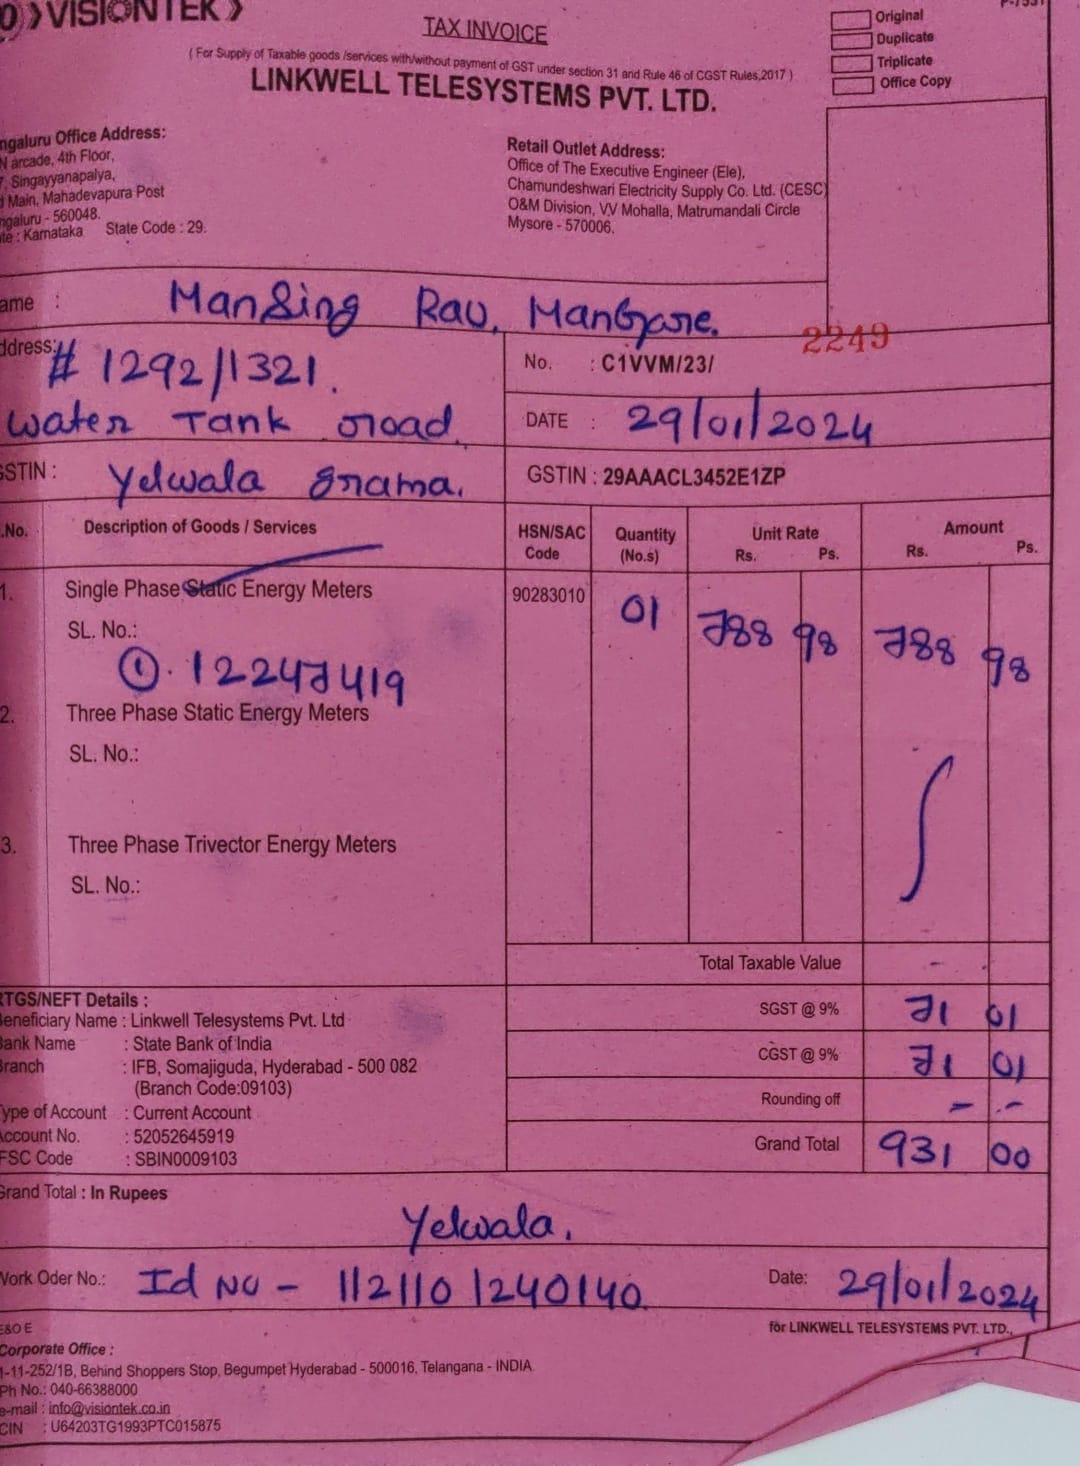 VISIONTEK
TAX INVOICE
Original
Duplicate
Triplicate
Office Copy
( For Supply of Taxable goods /services with/without payment of GST under section 31 and Rule 46 of CGST Rules,2017 )
LINKWELL TELESYSTEMS PVT. LTD.
ngaluru Office Address:
N arcade, 4th Floor,
7, Singayyanapalya,
Main, Mahadevapura Post
ngaluru - 560048.
te : Karnataka State Code : 29.
Retail Outlet Address:
Office of The Executive Engineer (Ele),
Chamundeshwari Electricity Supply Co. Ltd. (CESC)
O&M Division, V.V Mohalla, Matrumandali Circle
Mysore - 570006.
ame : ManSing Rav, 
ddress: # 1292/1321.
water Tank road.
GSTIN : Yelwala grama.
No. : C1VVM/23/ 2249
DATE : 29/01/2024
GSTIN : 29AAACL3452E1ZP
.No. Description of Goods / Services HSN/SAC Code Quantity (No.s) Unit Rate Rs. Ps. Amount Rs. Ps.
1. Single Phase Static Energy Meters 90283010 01 788 98 788 98
SL. No.:
① . 12247419
2. Three Phase Static Energy Meters
SL. No.:
3. Three Phase Trivector Energy Meters
SL. No.:
Total Taxable Value -
SGST @ 9% 71 01
CGST @ 9% 71 01
Rounding off - -
Grand Total 931 00
RTGS/NEFT Details :
Beneficiary Name : Linkwell Telesystems Pvt. Ltd
Bank Name : State Bank of India
Branch : IFB, Somajiguda, Hyderabad - 500 082
(Branch Code:09103)
Type of Account : Current Account
Account No. : 52052645919
FSC Code : SBIN0009103
Grand Total : In Rupees
Yelwala.
Work Oder No.: Id No - 112110 1240140 Date: 29/01/2024
E&O E
for LINKWELL TELESYSTEMS PVT. LTD.,
Corporate Office :
1-11-252/1B, Behind Shoppers Stop, Begumpet Hyderabad - 500016, Telangana - INDIA.
Ph No.: 040-66388000
e-mail : info@visiontek.co.in
CIN : U64203TG1993PTC015875